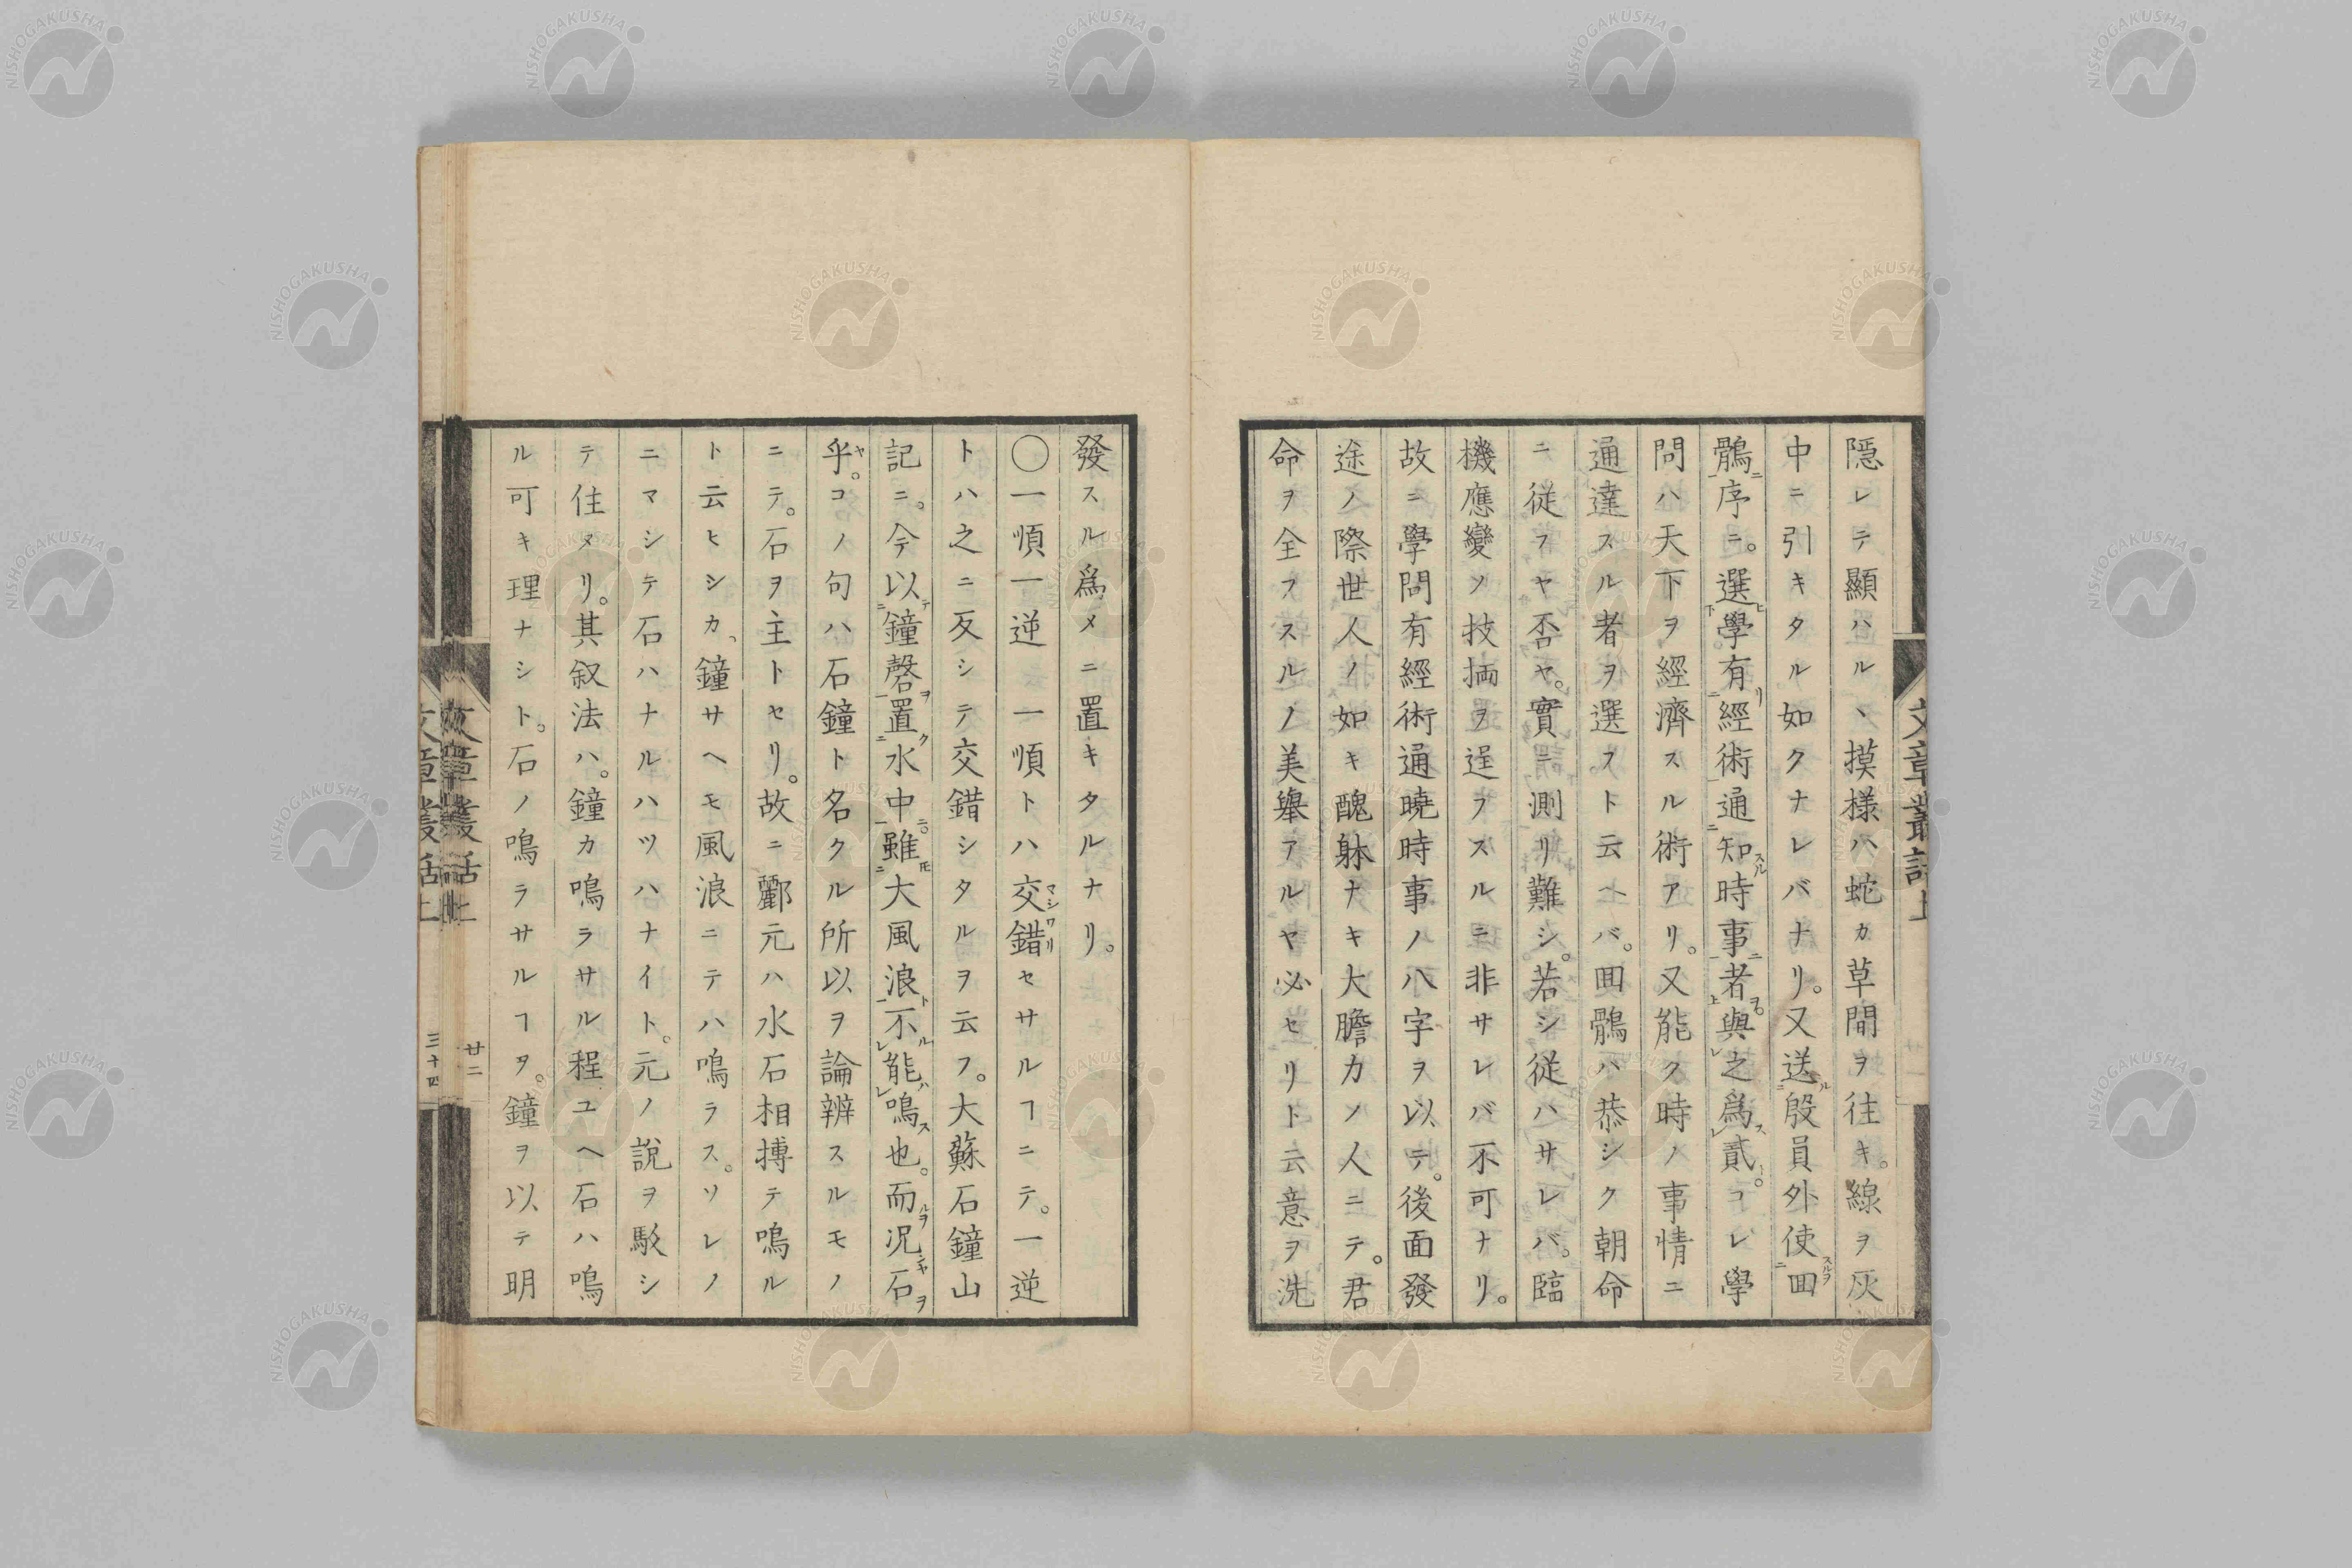 隱レテ顯ハルヽ摸樣ハ蛇カ草間ヲ往キ。線ヲ灰
中ニ引キタル如クナレバナリ。又送殷員外使囬
鶻序ニ。選學有經術通知時事者與之爲貳。コレ學
問ハ天下ヲ經濟スル術アリ。又能ク時ノ事情ニ
通達スル者ヲ選フト云ヘバ。囬鶻ハ恭シク朝命
ニ從フヤ否ヤ。實ニ測リ難シ。若シ從ハサレバ。臨
機應變ノ技㒳ヲ逞フスルニ非サレバ不可ナリ。
故ニ學問有經術通曉時事ノ八字ヲ以テ。後面發
途ノ際世人ノ如キ醜躰ナキ大膽力ノ人ニテ。君
命ヲ全フスルノ美舉アルヤ必セリト云意ヲ洗
發スル爲メニ置キタルナリ。
〇一順一逆一順トハ交錯セサルヿニテ。一逆
トハ之ニ反シテ交錯シタルヲ云フ。大蘇石鐘山
記ニ。今以鐘磬置水中。雖大風浪不能鳴也。而况石
乎。コノ句ハ石鐘ト名クル所以ヲ論辨スルモノ
ニテ。石ヲ主トセリ。故ニ酈元ハ水石相搏テ鳴ル
ト云ヒシカ、鐘サヘモ風浪ニテハ鳴ラス。ソレノ
ニマシテ石ハナルハツハナイト。元ノ說ヲ駁シ
テ住メリ。其叙法ハ。鐘カ鳴ラサル程ユヘ石ハ鳴
ル可キ理ナシト。石ノ鳴ラサルヿヲ。鐘ヲ以テ明
文章叢話上
廿二
三十四
NISHOGAKUSHA